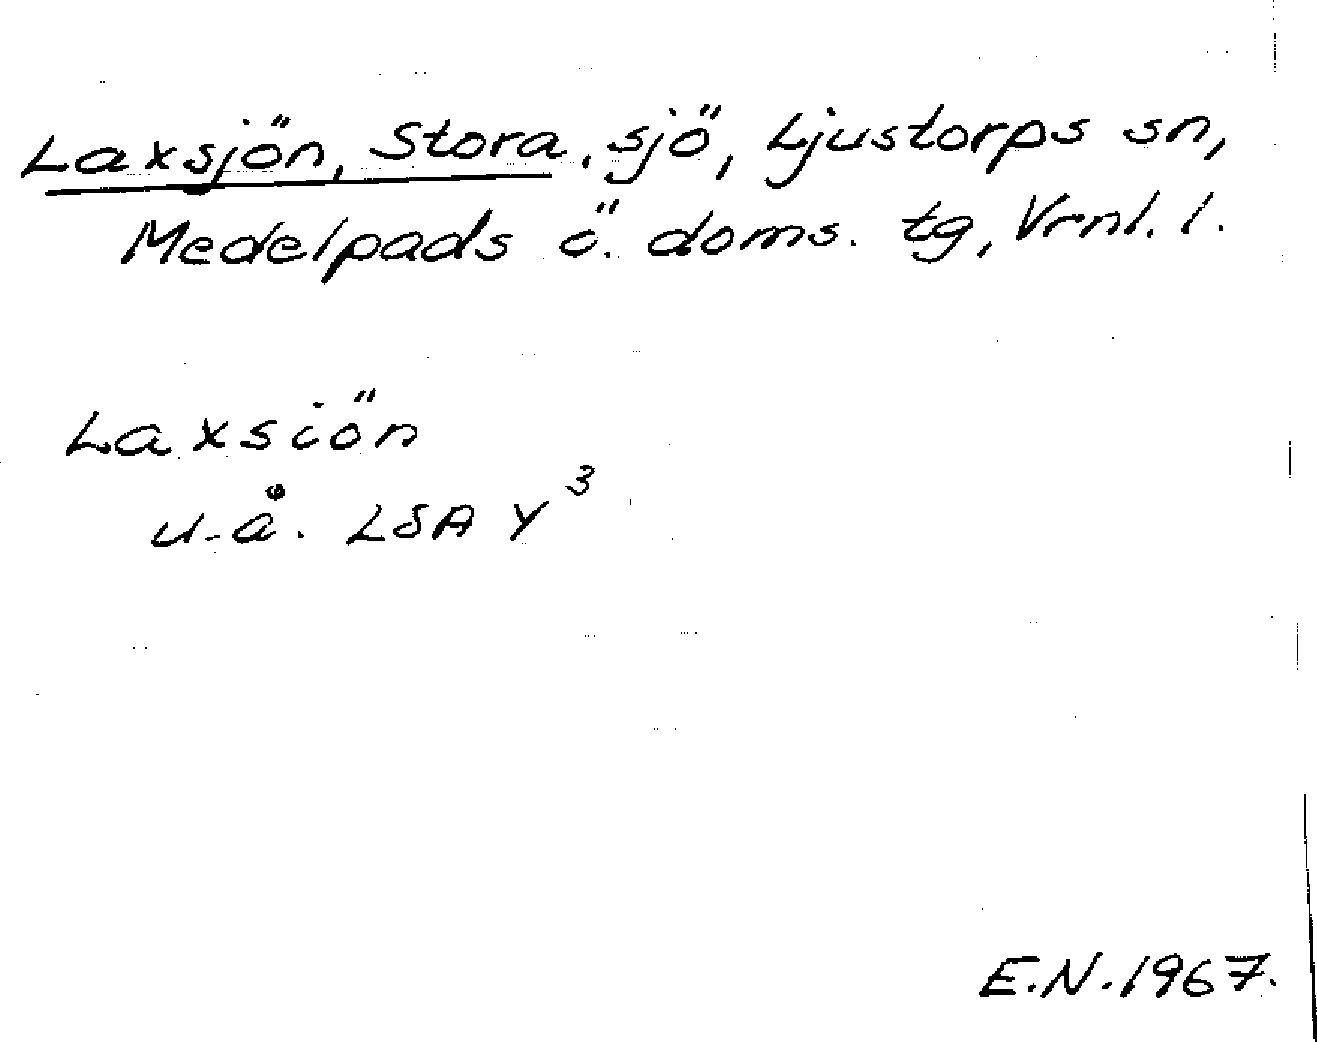 Laxsjön, Stora, sjö, Ljustorps sn,
Medelpads ö. doms. tg, Vrnl. l.
Laxsiön
u.å. LSA Y³
E.N. 1967.